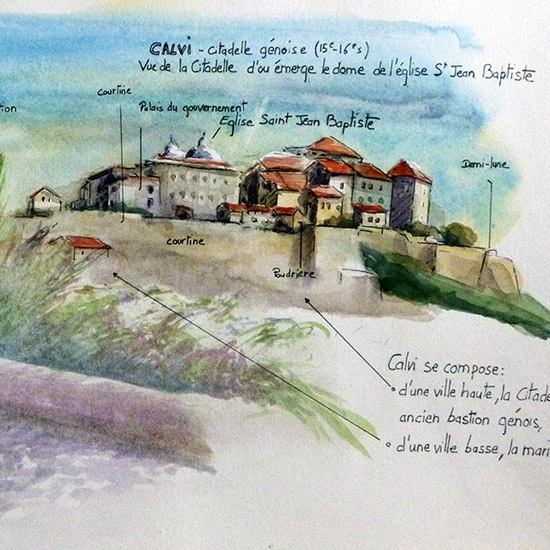 CALVI - citadelle génoise (15e-16es)
Vue de la Citadelle d'ou émerge le dome de l'église St Jean Baptiste
courtine
tion
Palais du gouvernement
Eglise Saint Jean Baptiste
Demi-lune
courtine
Poudrière
Calvi se compose:
d'une ville haute, la Citade
ancien bastion génois,
d'une ville basse, la mari